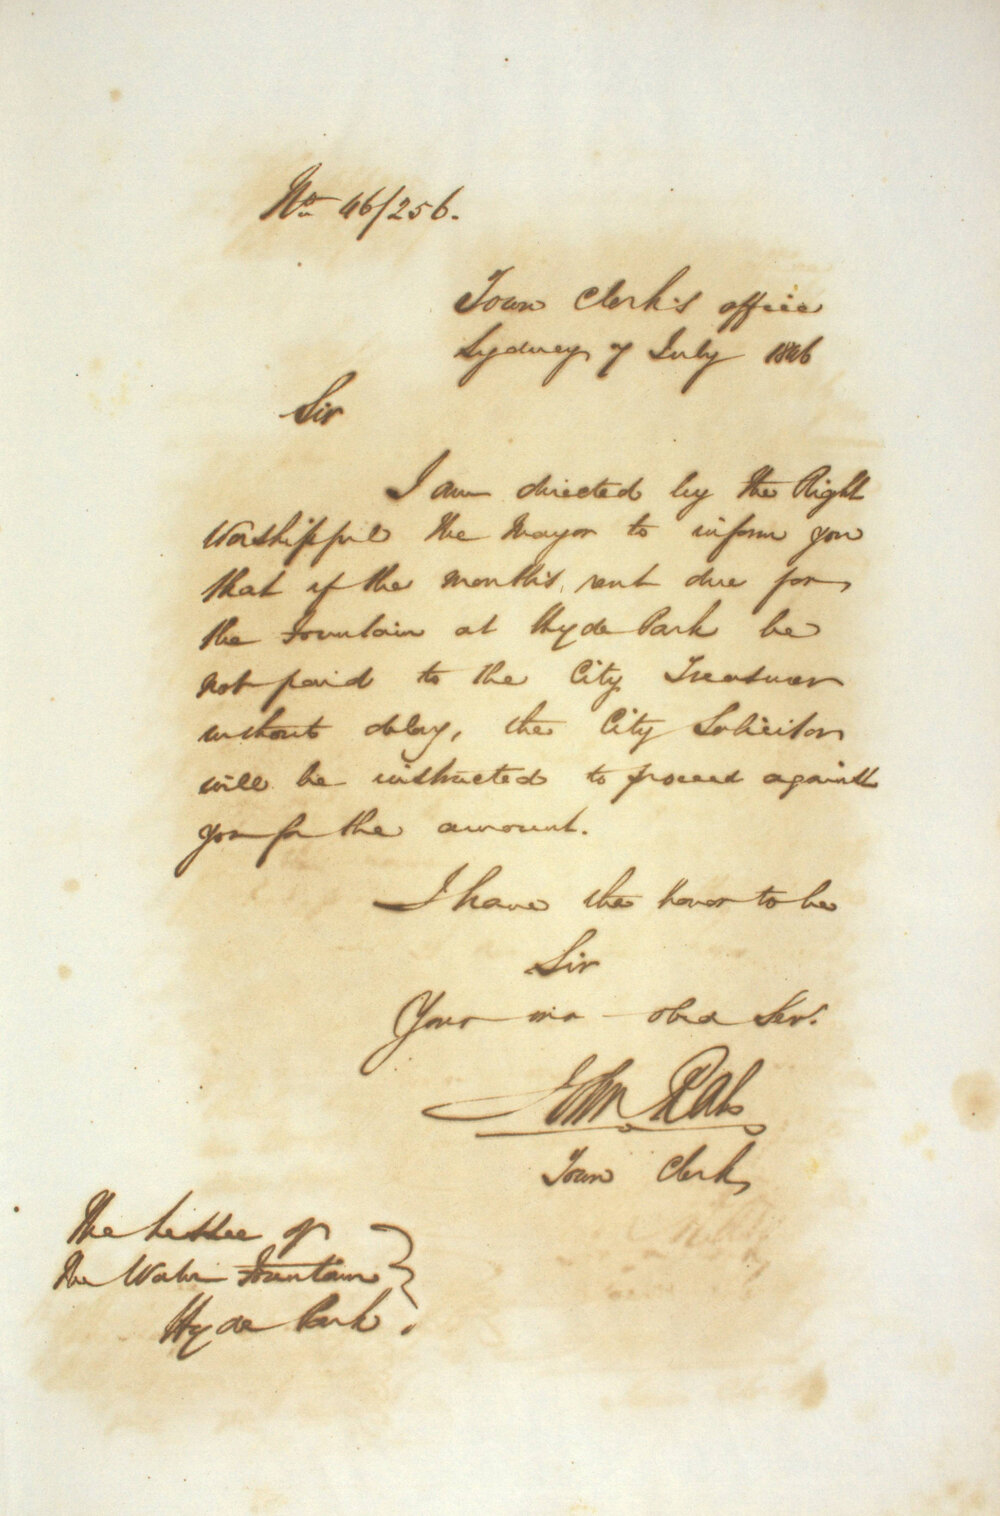 No 46/256.
Town Clerk's office
Sydney 7 July 1846
Sir
I am directed by the Right
Worshipful the Mayor to inform you
that if the month's rent due for
the Fountain at Hyde Park be
not paid to the City Treasurer
without delay, the City Solicitor
will be instructed to proceed against
you for the amount.
I have the honor to be
Sir
Your mo obed Serv.
John Rae
Town Clerk
The Lessee of
the Water Fountain
Hyde Park.